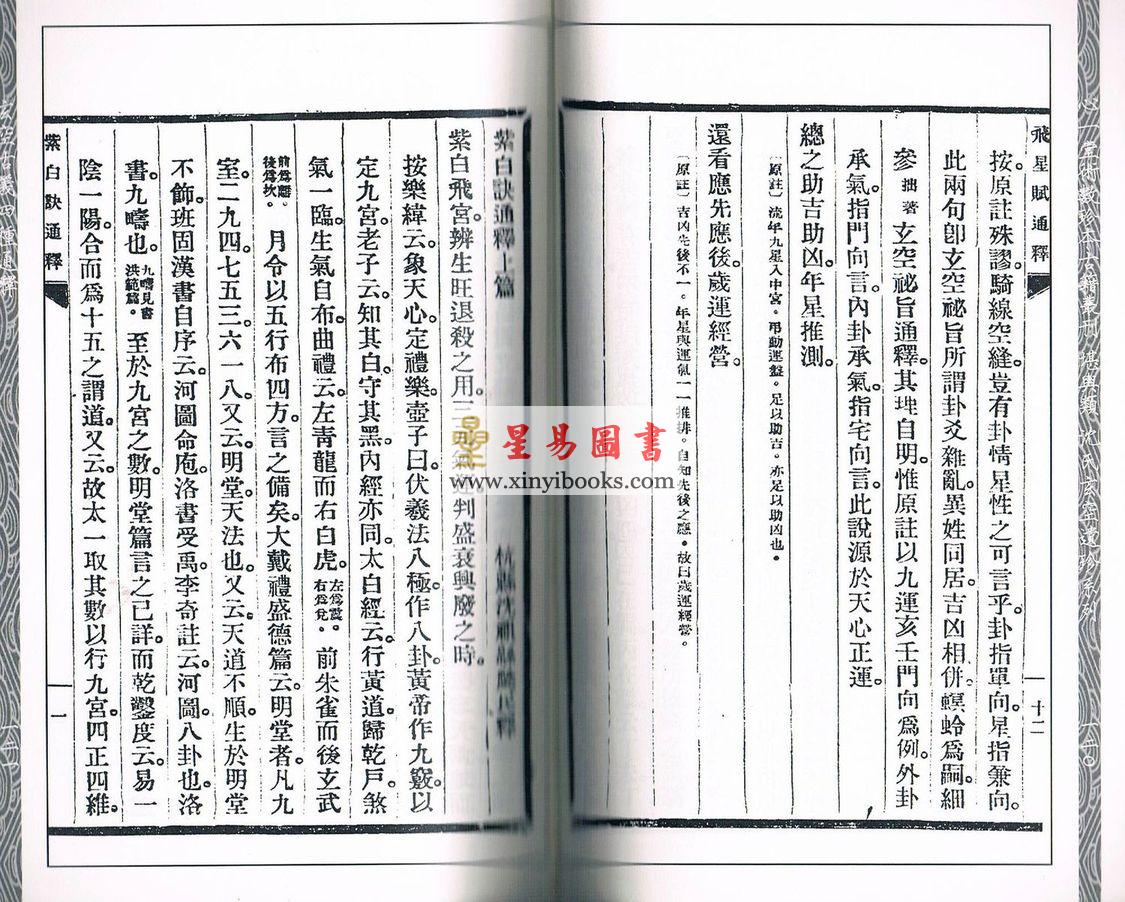 飛星賦通釋
十二
按。原註殊謬。騎線空縫。豈有卦情星性之可言乎。卦指單向。星指兼向。
此兩句卽玄空祕旨所謂卦爻雜亂。異姓同居。吉凶相併。螟蛉爲嗣。細
參拙著玄空祕旨通釋。其理自明。惟原註以九運亥壬門向爲例。外卦
承氣。指門向言。內卦承氣。指宅向言。此說源於天心正運。
總之助吉助凶。年星推測。
〔原註〕流年九星入中宮。弔動運盤。足以助吉。亦足以助凶也。
還看應先應後。歲運經營。
〔原註〕吉凶先後不一。年星與運氣一一推排。自知先後之應。故曰歲運經營。
紫白訣通釋上篇
杭縣沈祖緜瓞民釋
紫白飛宮。辨生旺退殺之用。三元氣運。判盛衰興廢之時。
按樂緯云。象天心。定禮樂。壺子曰。伏羲法八極。作八卦。黃帝作九竅。以
定九宮。老子云。知其白。守其黑。內經亦同。太白經云。行黃道。歸乾戶。煞
氣一臨。生氣自布。曲禮云。左青龍而右白虎。左爲震。右爲兌。前朱雀而後玄武
前爲離。後爲坎。月令以五行布四方。言之備矣。大戴禮盛德篇云。明堂者。凡九
室。二九四七五三六一八。又云。明堂。天法也。又云。天道不順。生於明堂
不飾。班固漢書自序云。河圖命庖。洛書受禹。李奇註云。河圖。八卦也。洛
書。九疇也。九疇見書洪範篇。至於九宮之數。明堂篇言之已詳。而乾鑿度云。易一
陰一陽。合而爲十五之謂道。又云。故太一取其數以行九宮。四正四維。
紫白訣通釋
一
星易圖書
www.xinyibooks.com